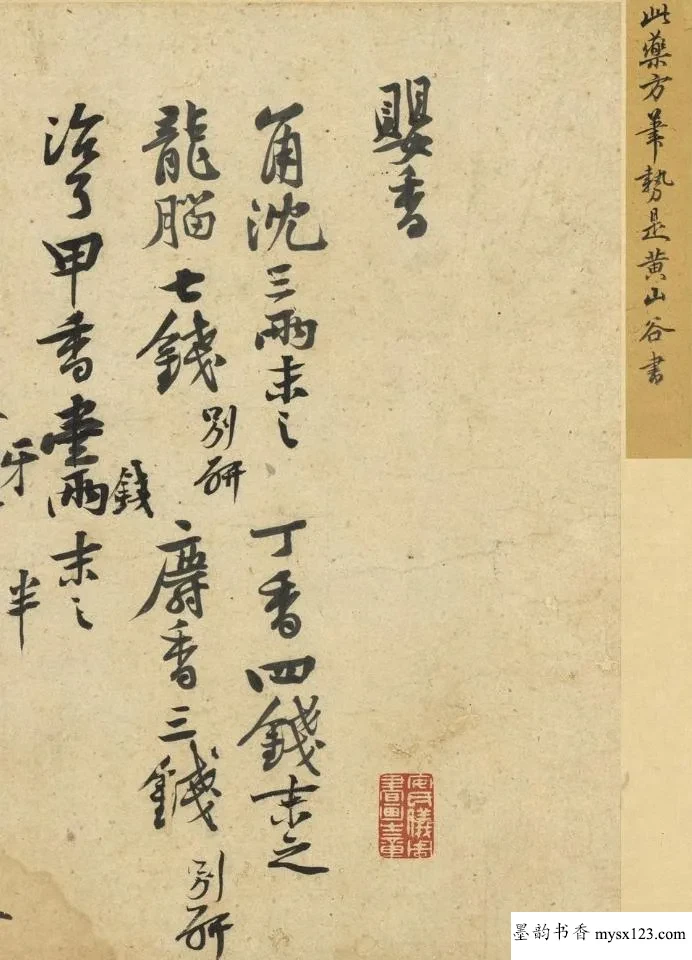 此藥方筆勢是黄山谷書
嬰香
角沈三兩末之 丁香四錢末之
龍腦七錢別研 麝香三錢別研
治了甲香壹兩錢末之
牙 半
安氏儀周書畫之章
墨韵书香 mysx123.com